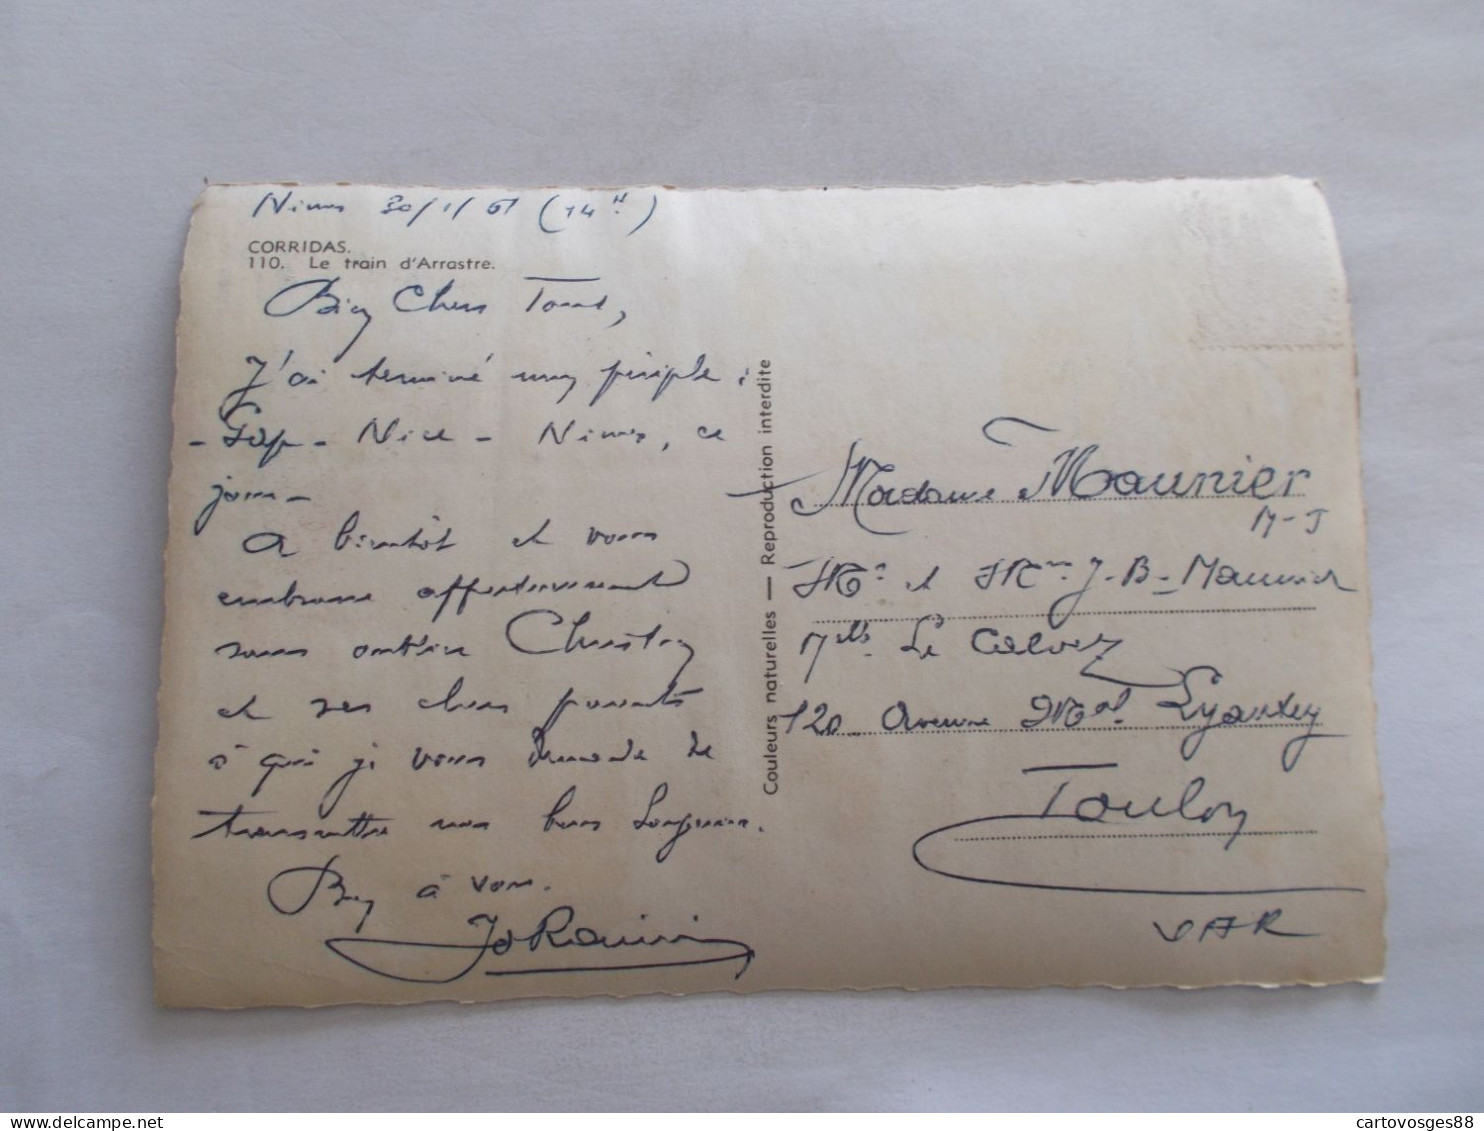 Nimes 30/1/61 (14H)
CORRIDAS.
110. Le train d'Arrastre.
Bien Chers Tous,
J'ai terminé mon périple :
- Gap - Nice - Nimes, ce
jour -
A bientôt et vous
embrasse affectueusement
sans oublier Christian
et ses chers parents
à qui je vous demande de
transmettre mon bon souvenir.
Bien à vous.
Couleurs naturelles — Reproduction interdite
Madame Maunier
M-J
Mr et Mme J-B-Maunier
Mlle Le Calvez
120 Avenue Mal Lyautey
Toulon
VAR
cartovosges88